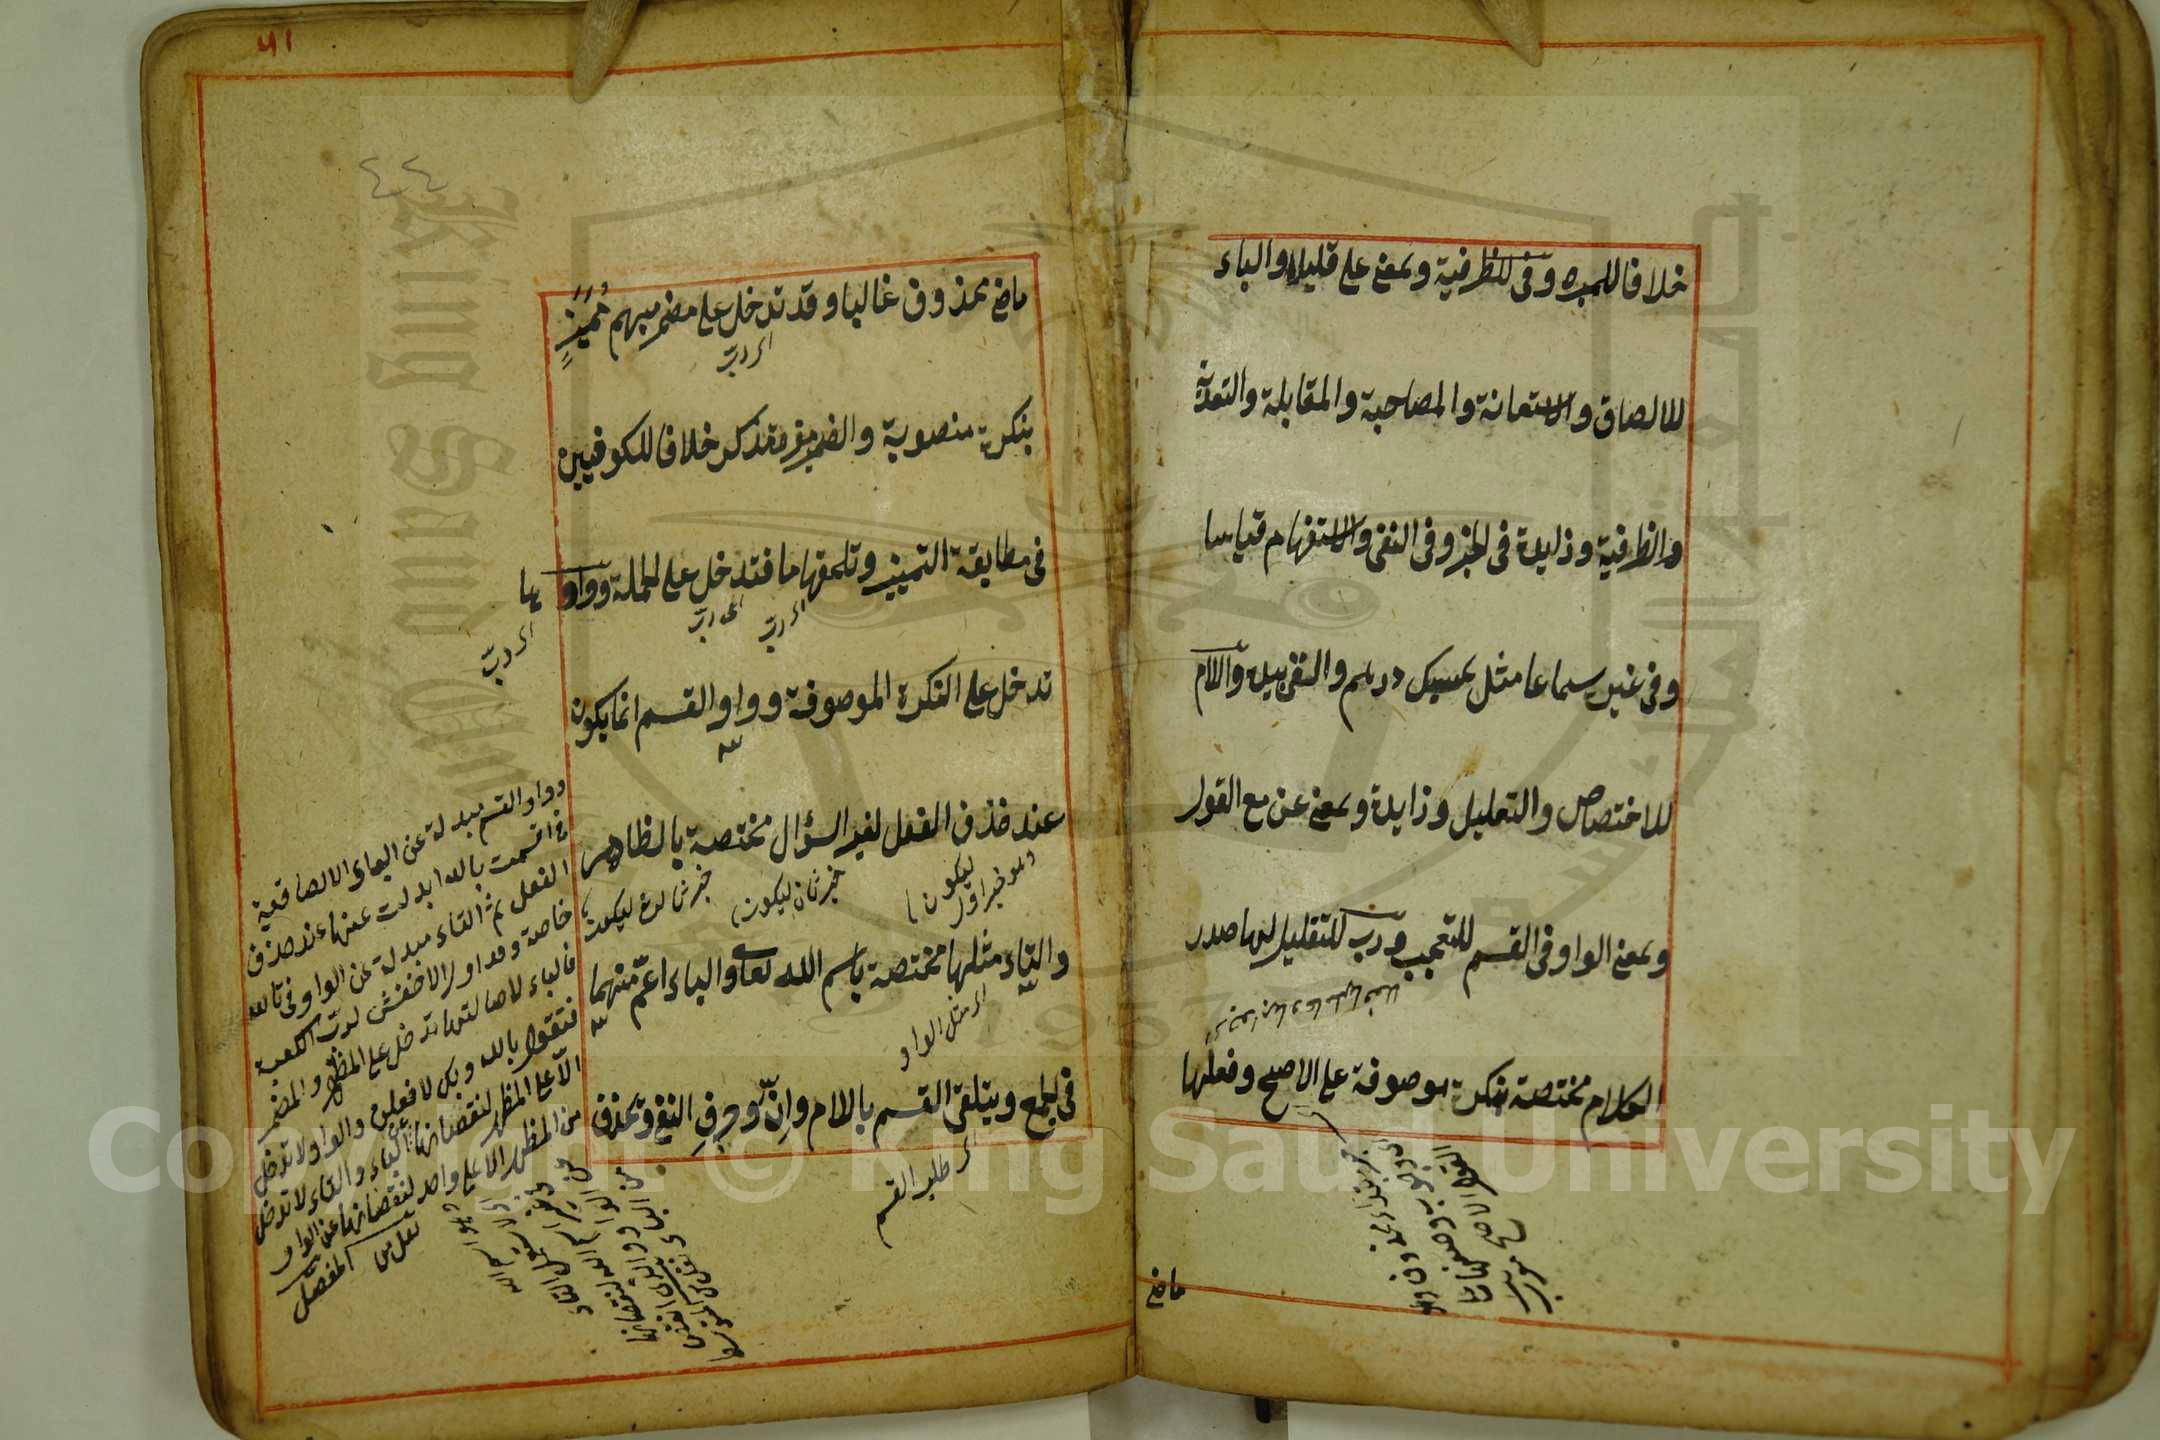 خلافا للمبرد وفى للظرفية وبمعنى على قليلا والباء
للالصاق والاستعانة والمصاحبة والمقابلة والتعدية
والظرفية وزايدة فى الخبر وفى النفى والاستفهام قياسا
وفى غيره سماعا مثل بحسبك درهم والقى بيده واللام
للاختصاص والتعليل وزايدة وبمعنى عن مع القول
وبمعنى الواو فى القسم للتعجب ورب للتقليل لها صدر
الكلام مختصة بنكرة موصوفة على الاصح وفعلها
ماض
٤١
٤٤
ماض محذوف غالبا وقد تدخل على مضمر مبهم مميز
اى رب
بنكرة منصوبة والضمير مفرد مذكر خلافا للكوفيين
فى مطابقة التمييز وتلحقها ما فتدخل على الجملة وواوها
اى رب
اى رب
اى رب
تدخل على النكرة الموصوفة وواو القسم انما يكون
عند حذف الفعل لغير السؤال مختصة بالظاهر
وهو خبر اول ليكون
خبر ثان ليكون
خبر ثالث ليكون
والتاء مثلها مختصة باسم الله تعالى والباء اعم منهما
اى مثل الواو
فى الجميع ويتلقى القسم باللام وان وحرف النفى ويحذف
وواو القسم مبدلة عن الباء الالصاقية
فى اقسمت بالله ابدلت عنها عند حذف
الفعل ثم التاء مبدلة عن الواو فى تالله
خاصة وقد اول الاخفش ترب الكعبة
فالباء لاصالتها تدخل على المظهر والمضمر
فتقول بالله وبك لافعلن والواو لا تدخل
الا على المظهر لنقصانها عن الباء والتاء لا تدخل
من المظهر الا على واحد لنقصانها عن الواو
المفصل